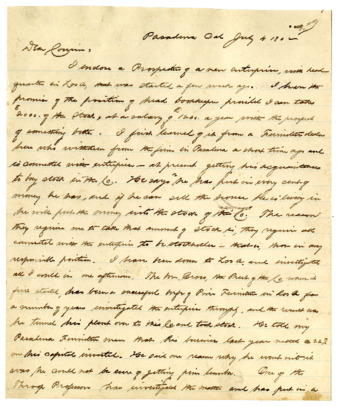 Pasadena Cal July 4 190
Dear Cousin:
I enclose a Prospectus of a new enterprise, with head
quarters in Los A, that was started a few weeks ago. I have the
promise of the position of head bookkeeper provided I can take
$2000. of the Stock, at a salary of $1200. a year with the prospect
of something better. I first learned of it from a Furniture dealer
here who withdrew from the firm in Pasadena a short time ago and
is connected with enterprise - at present getting his acquaintances
to buy stock in the Co. He says he has put in every cent of
money he has, and if he can sell the house he is living in
he will put the money into the stock of this Co. The reason
they require me to take that amount of stock is, they require all
connected with the enterprise to be stockholders - that is, those in any
responsible position. I have been down to Los A. and investigated
all I could in one afternoon. The Mr. the Prest of the Co
has been a successful of Furniture in Los A for
a number of years investigated the enterprise through, and the result was
he turned his plant over to this Co and took stock. He told my
Pasadena Furniture man that his business last year netted a
on his capital invested. He said one reason why he went into it
was, he could not be sure of getting lumber. One of the
Throop Professors has investigated the matter and has put in a